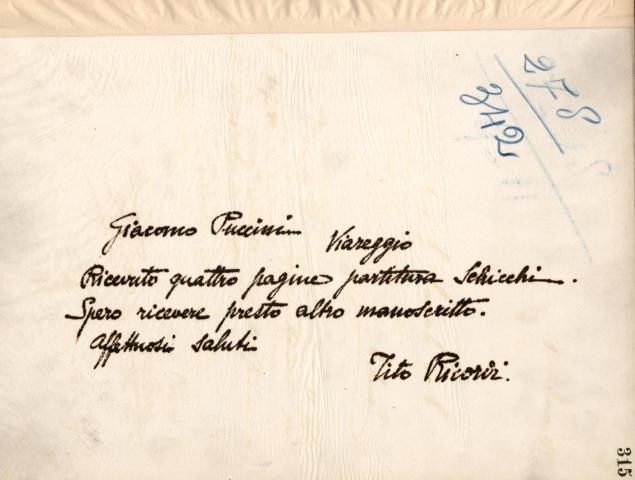 278
342
Giacomo Puccini Viareggio
Ricevuto quattro pagine partitura Schicchi.
Spero ricevere presto altro manoscritto.
Affettuosi saluti
Tito Ricordi.
315